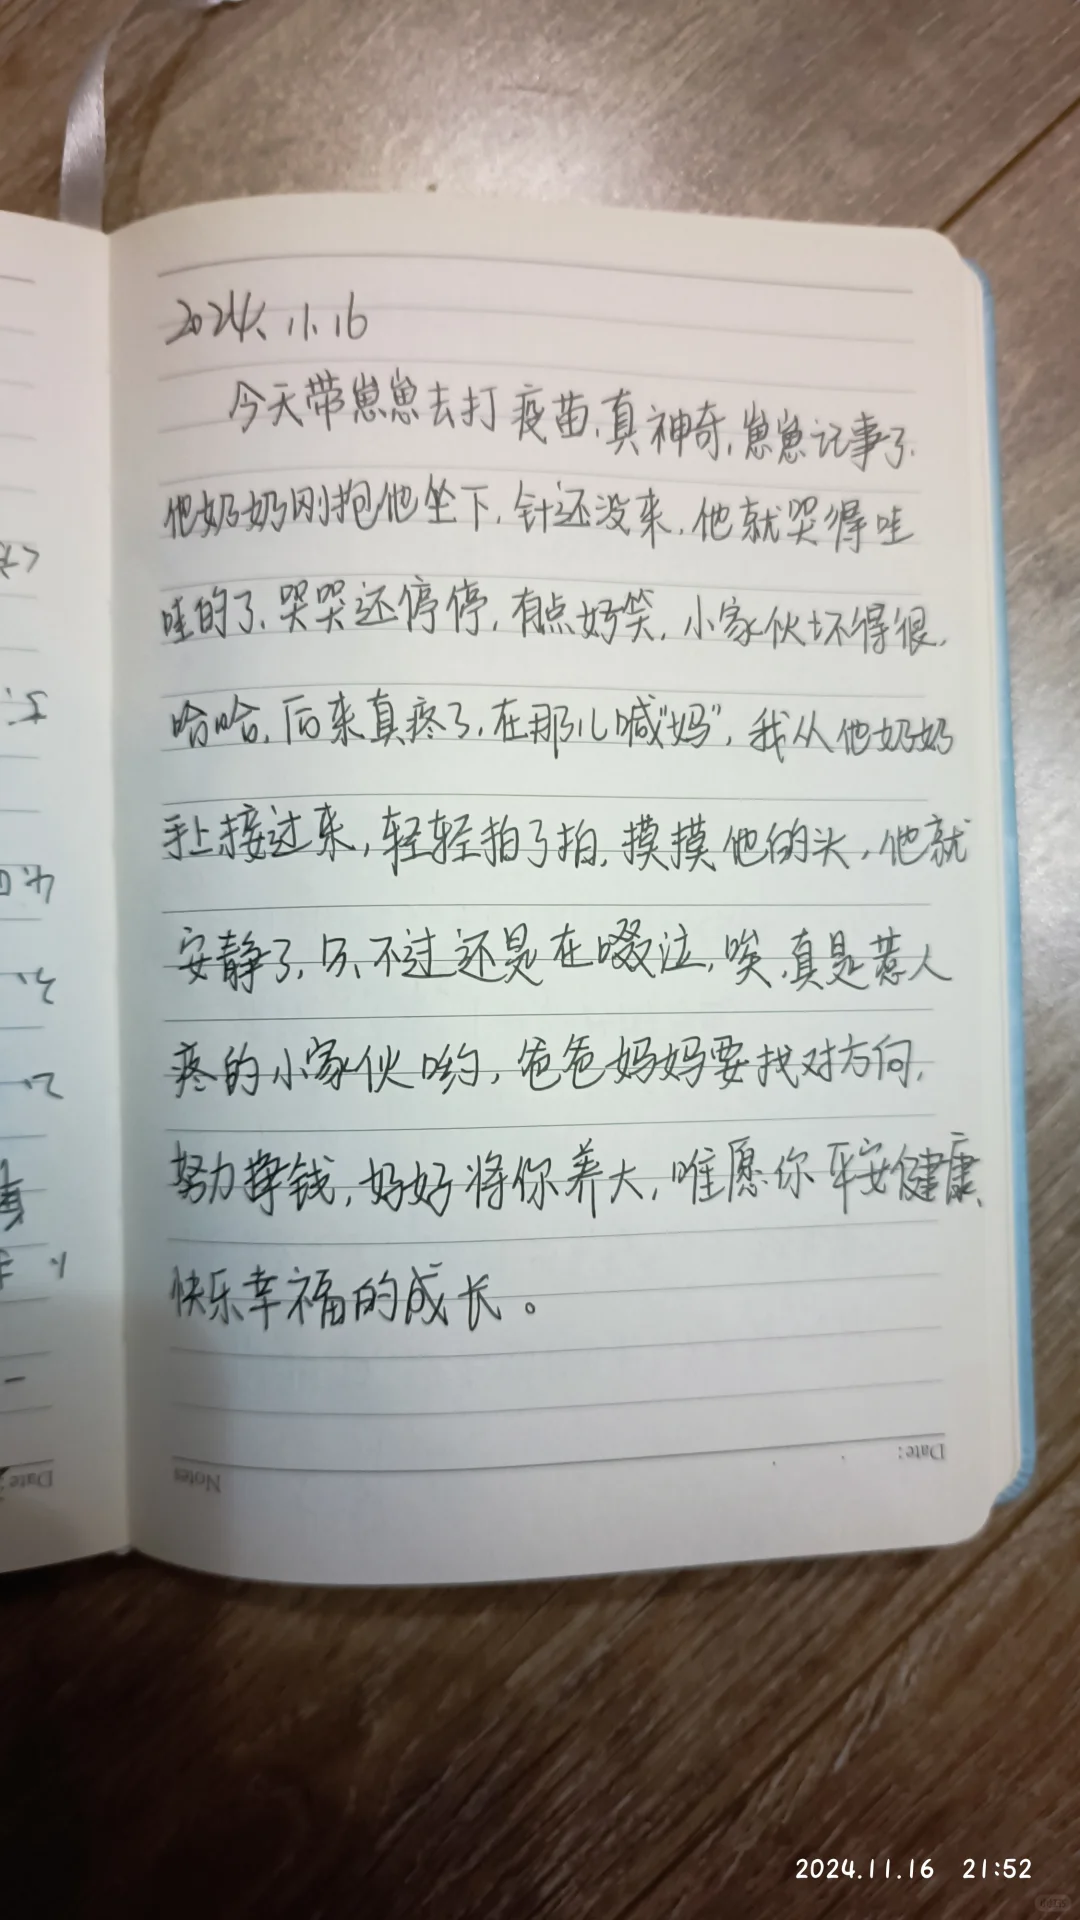 2024、11.16
今天带崽崽去打疫苗,真神奇,崽崽记事了.
他奶奶刚抱他坐下,针还没来,他就哭得哇
哇的了,哭哭还停停,有点好笑,小家伙坏得很,
哈哈,后来真疼了,在那儿喊“妈”,我从他奶奶
手上接过来,轻轻拍了拍,摸摸他的头,他就
安静了,只不过还是在啜泣,唉,真是惹人
疼的小家伙哟,爸爸妈妈要找对方向,
努力挣钱,好好将你养大,唯愿你平安健康、
快乐幸福的成长。
Date:
Notes
Date
2024.11.16 21:52